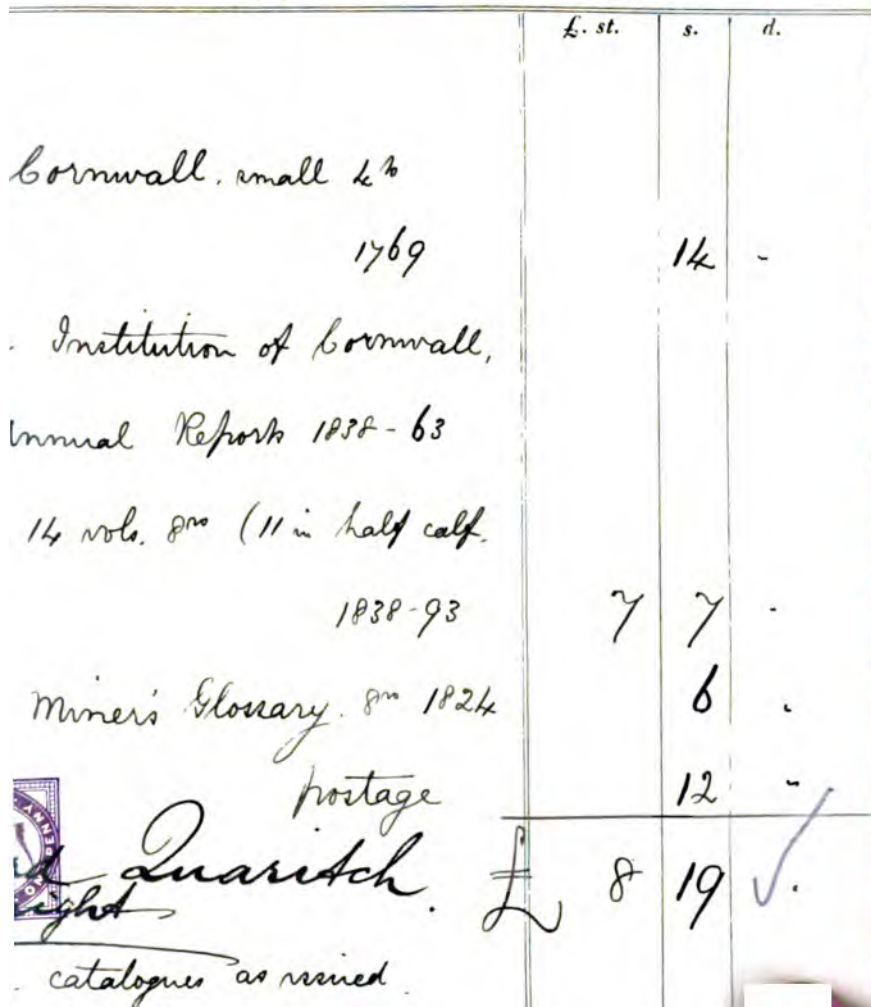 £. st. s. d.
Cornwall. small 4to
1769 14 -
Institution of Cornwall,
Annual Reports 1838-63
14 vols. 8vo (11 in half calf.
1838-93 7 7 -
Miner's Glossary. 8vo 1824 6 -
postage 12 -
PENNY
d Quaritch. £ 8 19 .
ight
catalogues as issued.